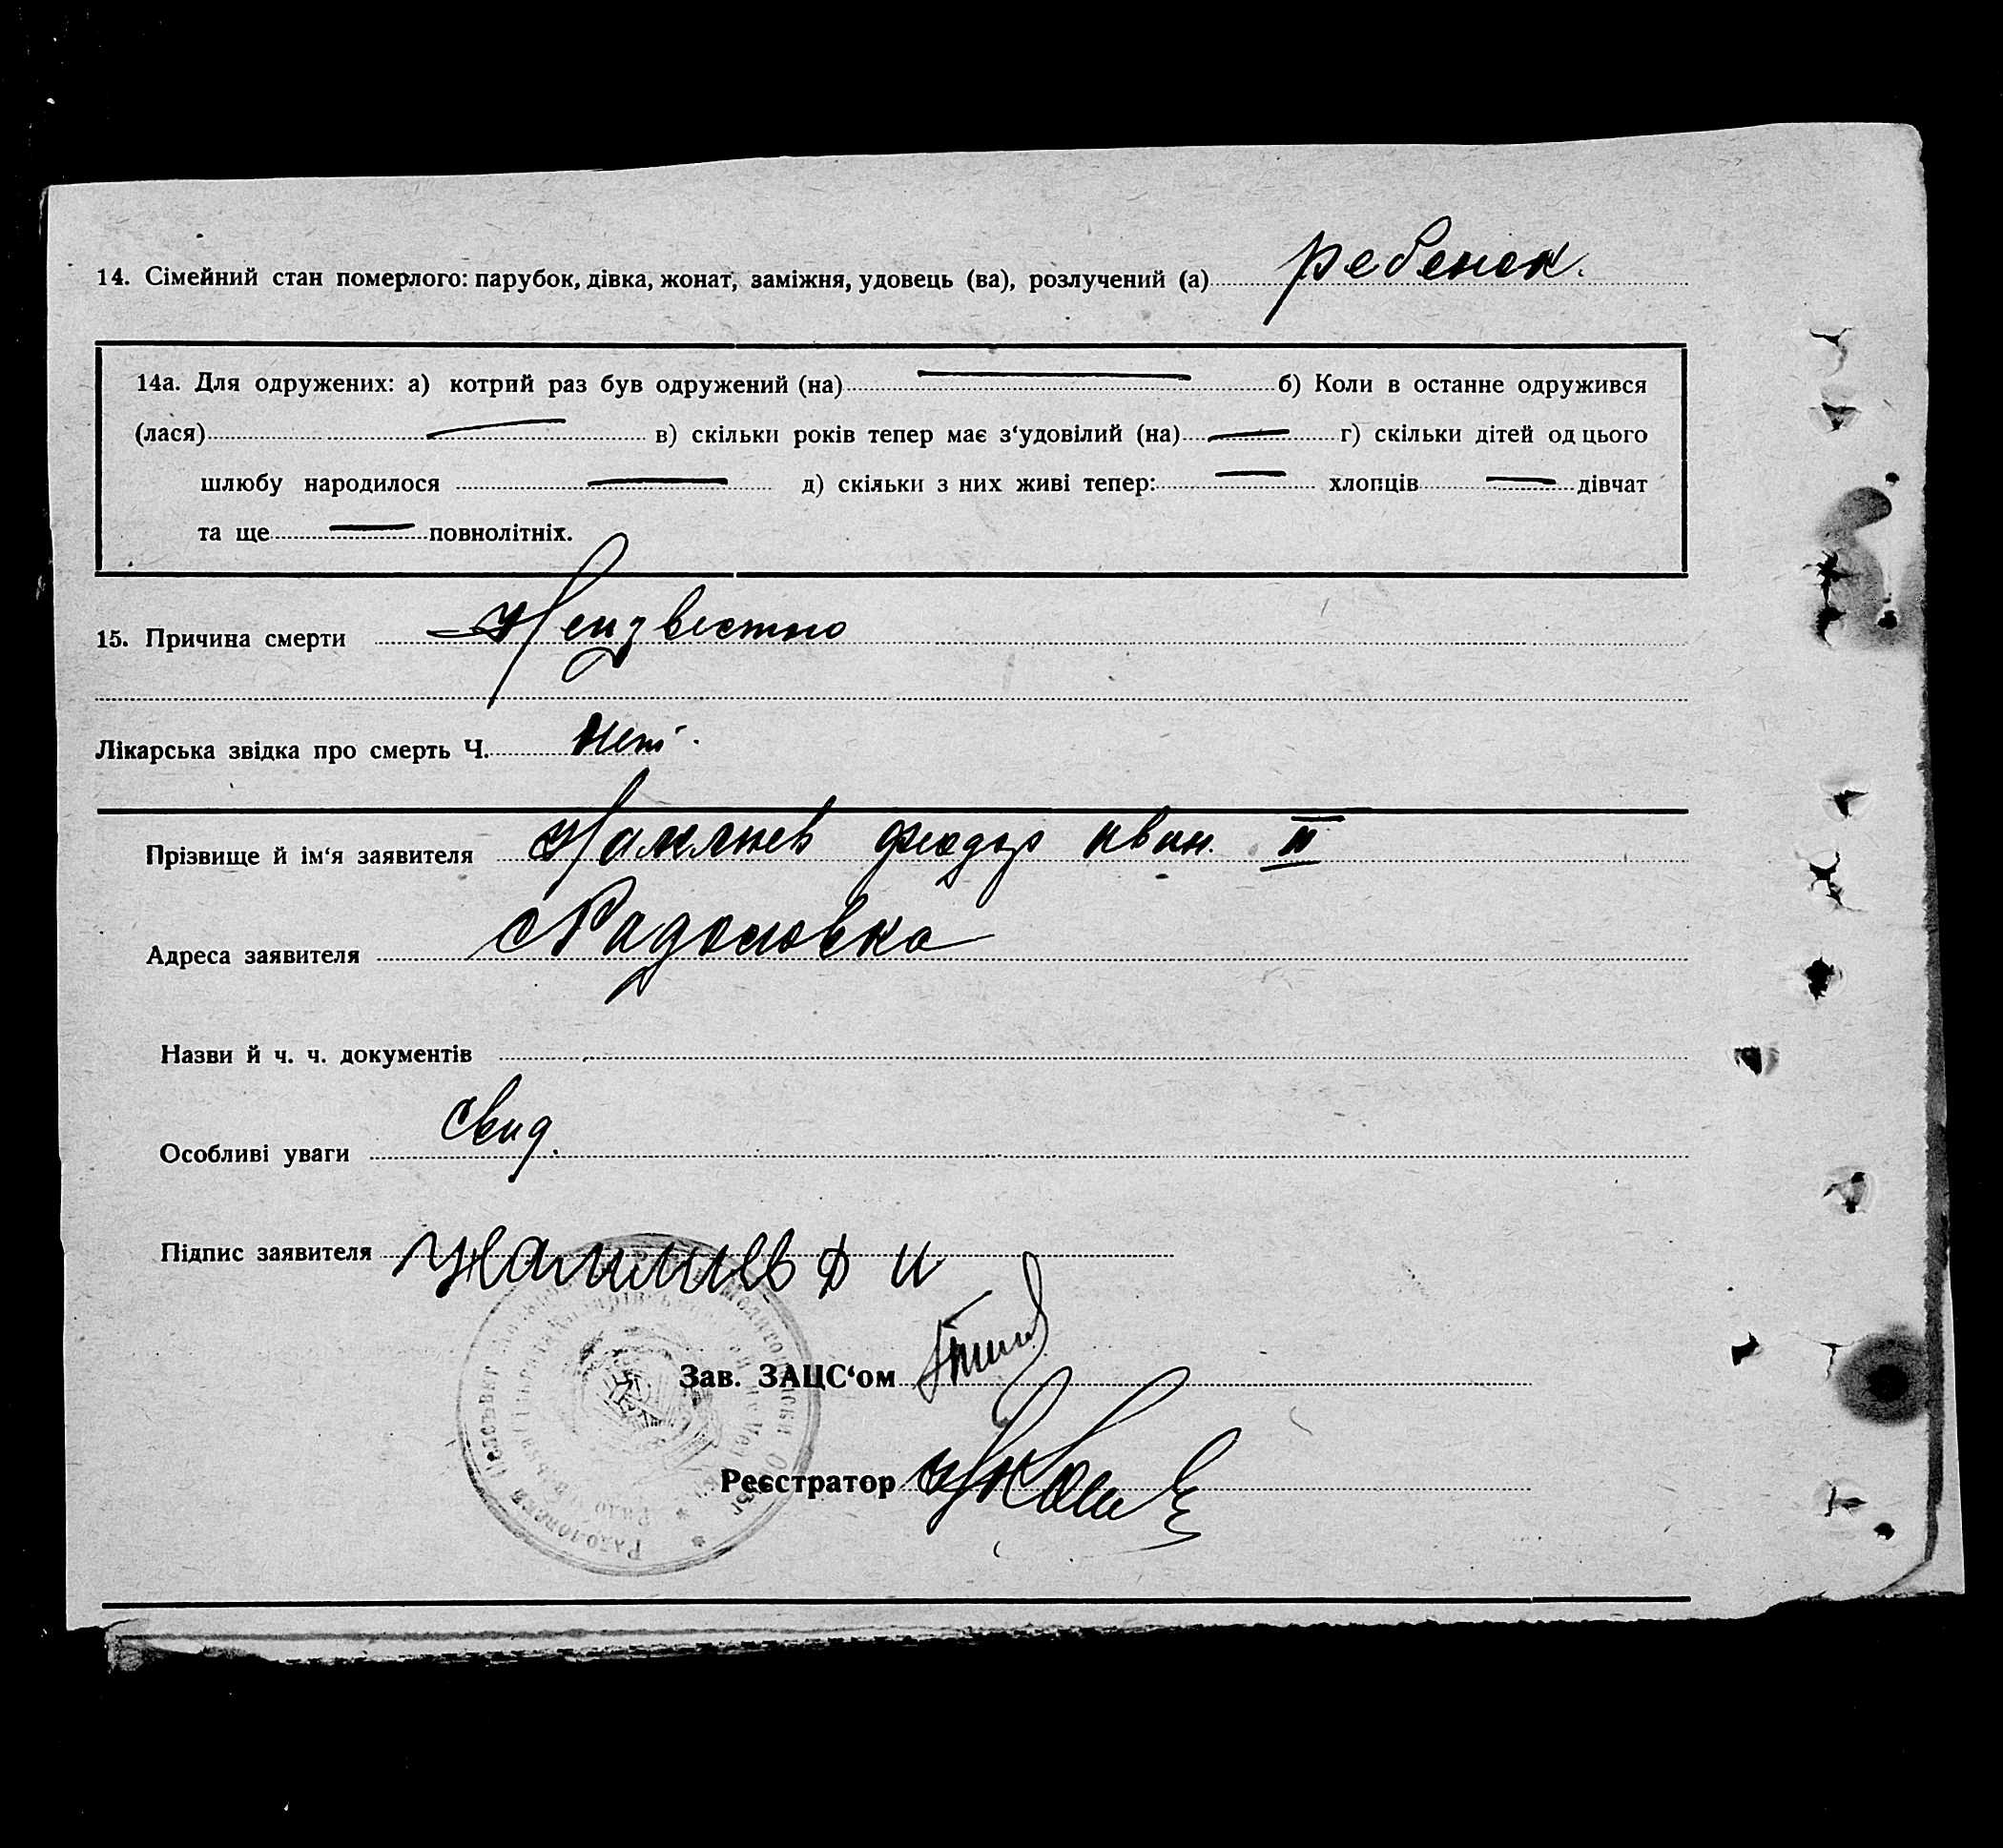 14. Сімейний стан померлого: парубок, дівка, жонат, заміжня, удовець (ва), розлучений (а) ребенок.
14а. Для одружених: а) котрий раз був одружений (на) — б) Коли в останне одружився
(лася) — в) скільки років тепер має з‘удовілий (на) — г) скільки дітей од цього
шлюбу народилося — д) скільки з них живі тепер: — хлопців — дівчат
та ще — повнолітніх.
15. Причина смерти Неизвестно
Лікарська звідка про смерть Ч. нет.
Прізвище й ім‘я заявителя Феодор Иван. II
Адреса заявителя с Радоловка
Назви й ч. ч. документів
Особливі уваги Свид.
Підпис заявителя
Зав. ЗАЦС‘ом
Реєстратор